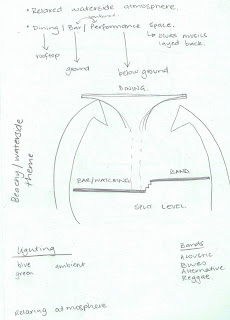 • Relaxed waterside atmosphere.
• Dining / Bar / Performance space.
↳ blues music
layed back.
rooftop
ground
below ground
DINING.
Beachy/waterside
theme
BAR/WATCHING
BAND
SPLIT LEVEL
lighting
blue ambient
green
Bands
Acoustic
Blues
Alternative
Reggae
Relaxing atmosphere